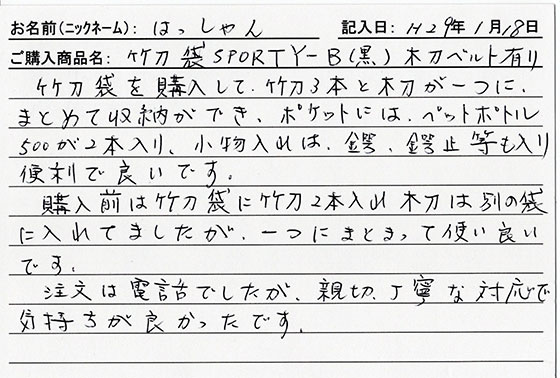 お名前(ニックネーム): はっしゃん 記入日: H29年1月18日
ご購入商品名: 竹刀袋SPORTY-B(黒)木刀ベルト有り
竹刀袋を購入して、竹刀3本と木刀が一つに、
まとめて収納ができ、ポケットには、ペットボトル
500が2本入り、小物入れは、鍔、鍔止等も入り
便利で良いです。
購入前は竹刀袋に竹刀2本入れ木刀は別の袋
に入れてましたが、一つにまとまって使い良い
です。
注文は電話でしたが、親切、丁寧な対応で
気持ちが良かったです。